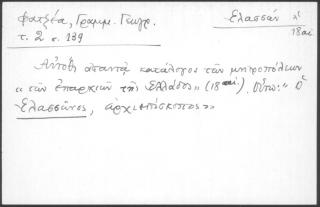 Φατζέα, Γραμμ. Γεωγρ.
τ. 2 σ. 139
Ελασσών
18 αι
Αὐτόθι ἀπαντᾷ κατάλογος τῶν μητροπόλεων
"τῶν ἐπαρχιῶν τῆς Ἑλλάδος" (18 αἰ). Οὕτω: "Ὁ
Ἐλασσῶνος, ἀρχιεπίσκοπος"